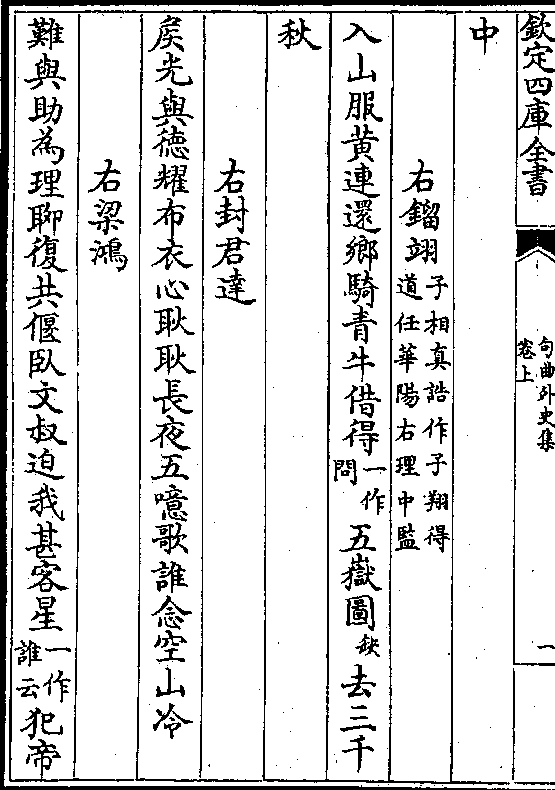 欽定四庫全書
句曲外史集
卷上
一
中
右鎦翊子相真誥作子翔得道任華陽右理中監
入山服黄連還鄉騎青牛借得一作問五嶽圖缺去三千
秋
右封君達
矦光與德耀布衣心耿耿長夜五噫歌誰念空山冷
右梁鴻
難與助為理聊復共偃臥文叔迫我甚客星一作誰云犯帝